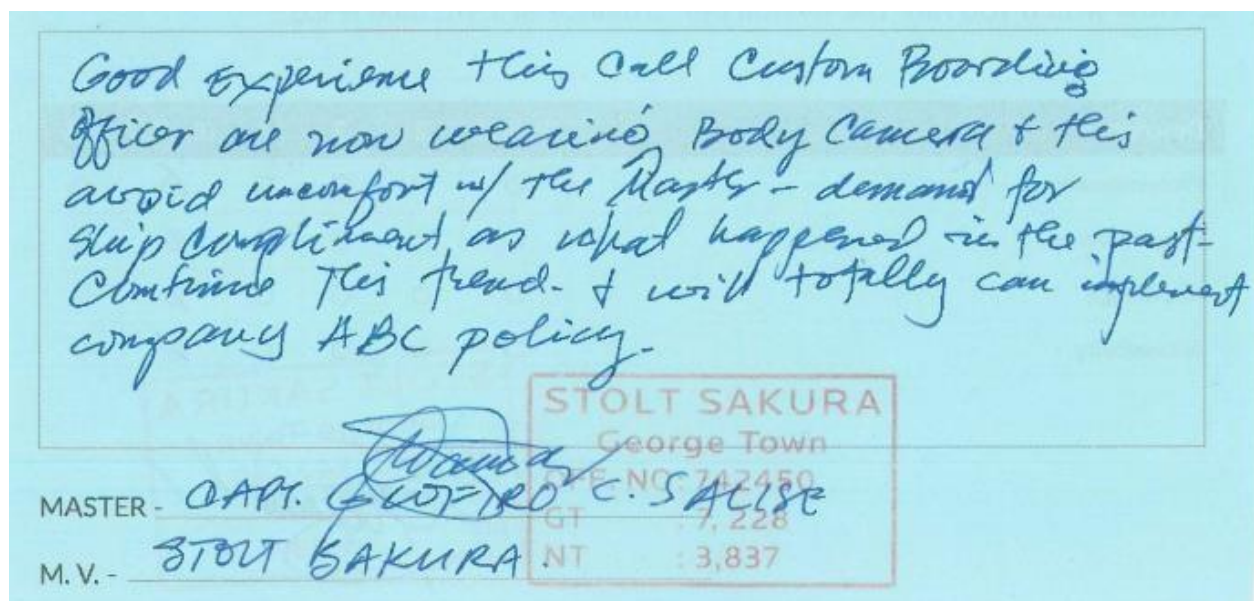 Good Experience this Call Custom Boarding
Officer are now wearing Body Camera & this
avoid uncomfort w/ the Master - demand for
ship compliment as what happened in the past-
Continue This trend. & will totally can implement
company ABC policy.
STOLT SAKURA
George Town
OFF. NO: 742450
GT : 7,228
NT : 3,837
MASTER - CAPT. C. SALISE
M. V. - STOLT SAKURA.